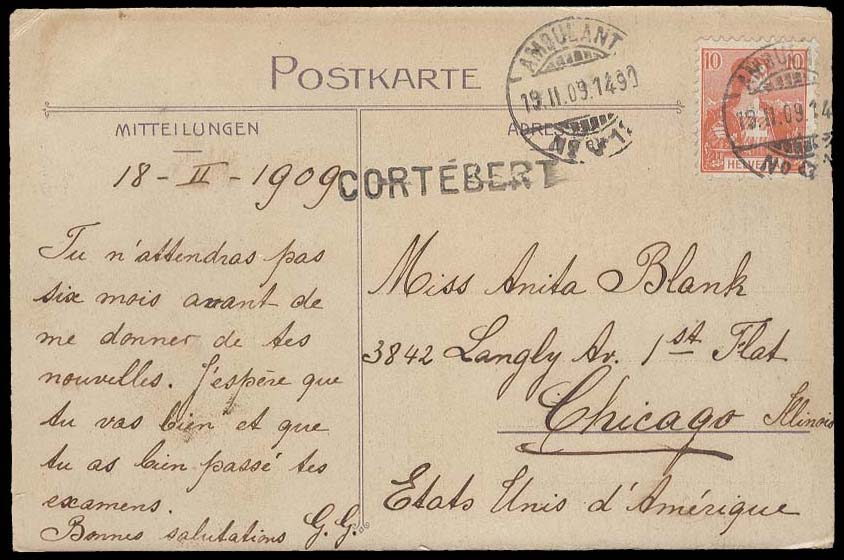 POSTKARTE
MITTEILUNGEN
18 - II - 1909
Tu n'attendras pas
six mois avant de
me donner de tes
nouvelles. J'espère que
tu vas bien et que
tu as bien passé tes
examens.
Bonnes salutations G.G.
AMBULANT
19.II.09.14
No
10 10
HELVETIA
AMBULANT
19.II.09.14
No
ADRESSE
CORTÉBERT
Miss Anita Blank
3842 Langly Av. 1st Flat
Chicago Illinois
Etats Unis d'Amérique